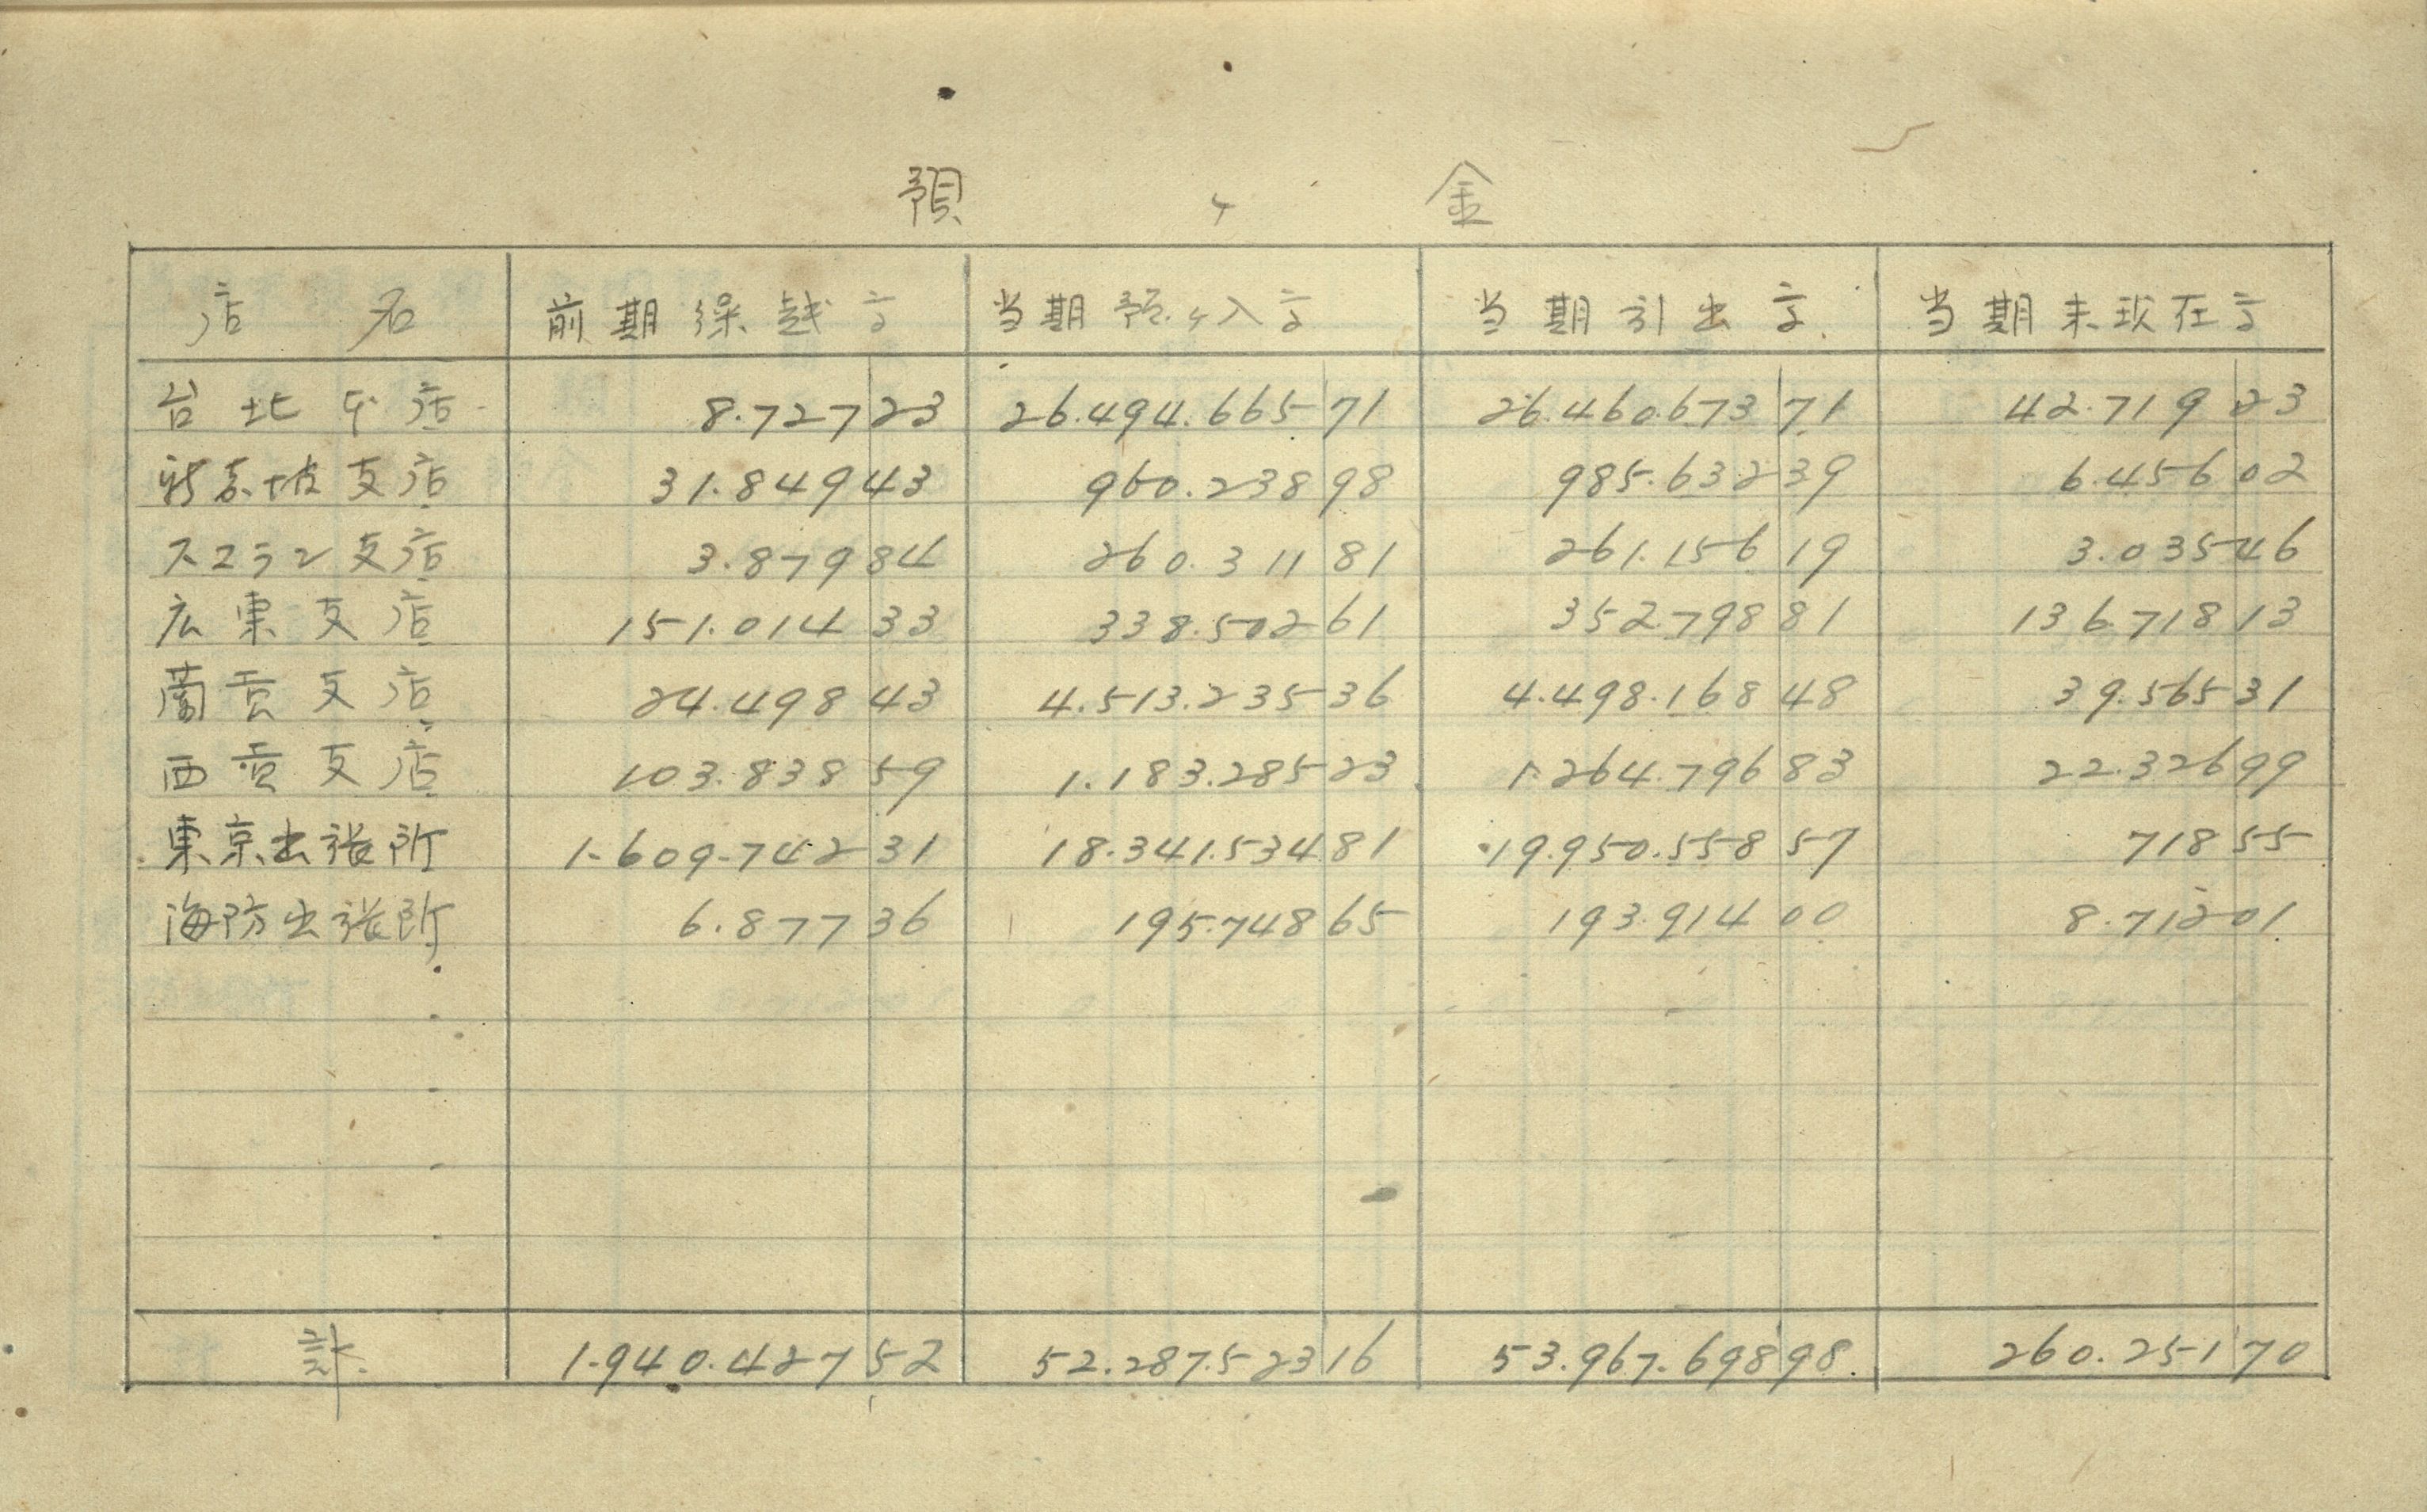 預ケ金
店名 前期繰越高 当期預ケ入高 当期引出高 当期末現在高
台北本店 8.727 23 26.494.665 71 26.460.673 71 42.719 23
新嘉坡支店 31.849 43 960.238 98 985.632 39 6.456 02
スマラン支店 3.879 84 260.311 81 261.156 19 3.035 46
広東支店 151.014 33 338.502 61 352798 81 136.718 13
蘭貢支店 24.498 43 4.513.235 36 4.498.168 48 39.565 31
西貢支店 103.838 59 1.183.285 23 1.264.796 83 22.326 99
東京出張所 1.609.742 31 18.341.534 81 19.950.558 57 718 55
海防出張所 6.877 36 195.748 65 193.914 00 8.712 01
計 1.940.427 52 52.287.523 16 53.967.698 98 260.251 70